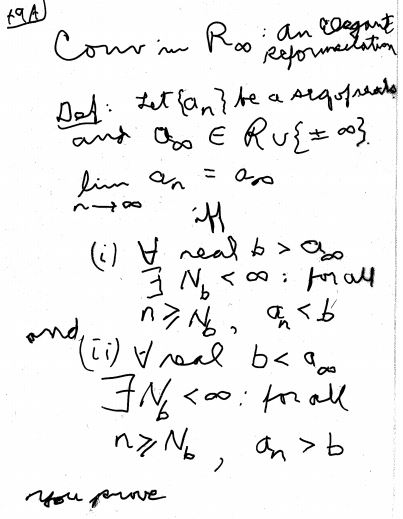 +9A
Conv in R∞: an elegant
reformulation
Def: Let {aₙ} be a seq of reals
and a∞ ∈ R ∪ {± ∞}.
lim aₙ = a∞
n→∞
iff
(i) ∀ real b > a∞
∃ N_b < ∞ : for all
n ≥ N_b, aₙ < b
and (ii) ∀ real b < a∞
∃ N_b < ∞ : for all
n ≥ N_b, aₙ > b
you prove